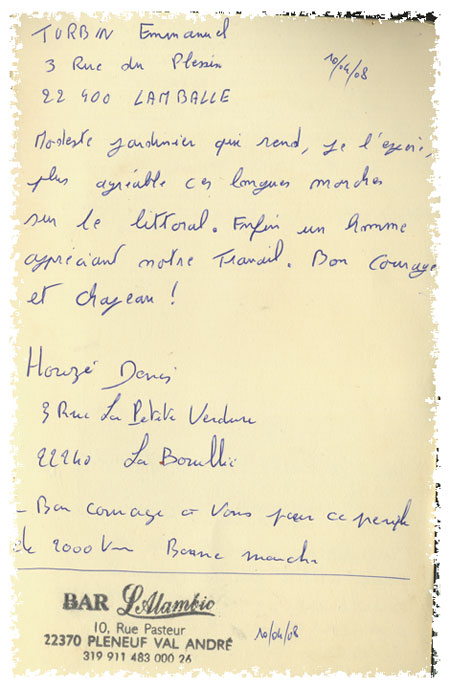 TURBIN Emmanuel
3 Rue du Plessin
10/04/08
22 400 LAMBALLE
Modeste jardinier qui rend, je l'espère,
plus agréable ces longues marches
sur le littoral. Enfin un homme
appréciant notre Travail. Bon Courage
et chapeau !
Houzé Denis
3 Rue La Petite Verdure
22240 La Bouillie
- Bon courage à Vous pour ce périple
de 2000 km Bonne marche
BAR L'Alambic
10, Rue Pasteur
22370 PLENEUF VAL ANDRÉ
10/04/08
319 911 483 000 26